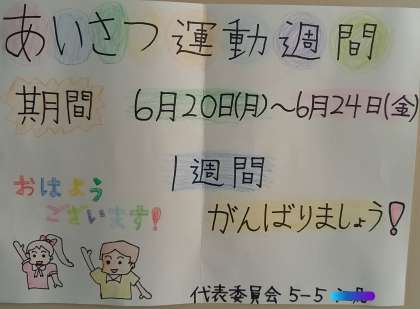 あいさつ運動週間
期間 6月20日(月)～6月24日(金)
1週間
がんばりましょう!
おはよう
ございます!
代表委員会 5-5